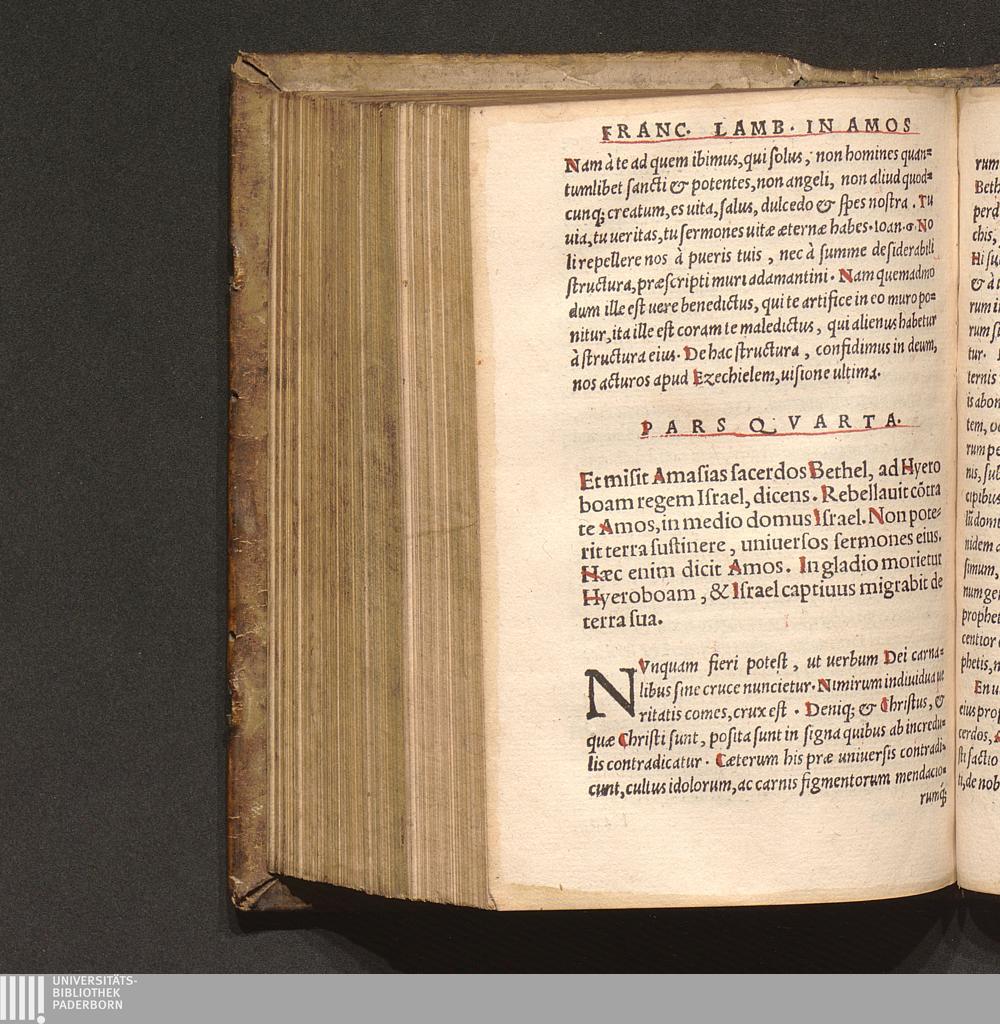 FRANC. LAMB. IN AMOS
Nam à te ad quem ibimus, qui ſolus, non homines quan=
tumlibet ſancti & potentes, non angeli, non aliud quod=
cunq; creatum, es uita, ſalus, dulcedo & ſpes noſtra. Tu
uia, tu ueritas, tu ſermones uitæ æternæ habes. Ioan. 6. No
li repellere nos à pueris tuis, nec à ſumme deſiderabili
ſtructura, præſcripti muri adamantini. Nam quemadmo
dum ille eſt uere benedictus, qui te artifice in eo muro po=
nitur, ita ille eſt coram te maledictus, qui alienus habetur
à ſtructura eius. De hac ſtructura, confidimus in deum,
nos acturos apud Ezechielem, uiſione ultima.
PARS QVARTA.
Et miſit Amaſias ſacerdos Bethel, ad Hyero
boam regem Iſrael, dicens. Rebellauit cõtra
te Amos, in medio domus Iſrael. Non pote=
rit terra ſuſtinere, uniuerſos ſermones eius.
Hæc enim dicit Amos. In gladio morietur
Hyeroboam, & Iſrael captiuus migrabit de
terra ſua.
NVnquam fieri poteſt, ut uerbum Dei carna=
libus ſine cruce nuncietur. Nimirum indiuidua ue
ritatis comes, crux eſt. Deniq; & Chriſtus, &
quæ Chriſti ſunt, poſita ſunt in ſigna quibus ab incredu=
lis contradicatur. Cæterum his præ uniuerſis contradi=
cunt, cultus idolorum, ac carnis figmentorum mendacio=
rumq́;
rum
Beth
perd
chis,
Hi ſu
& à
rum i
rum ſi
tur.
ternis
is abon
tem, oc
rum pe
nis, ſub
cipibus
lũ domu
nidem a
ſimum,
num ge
prophet
centior
phetis, n
En u
eius prop
cerdos,
ſti factio
ti, de nob
UNIVERSITÄTS-
BIBLIOTHEK
PADERBORN